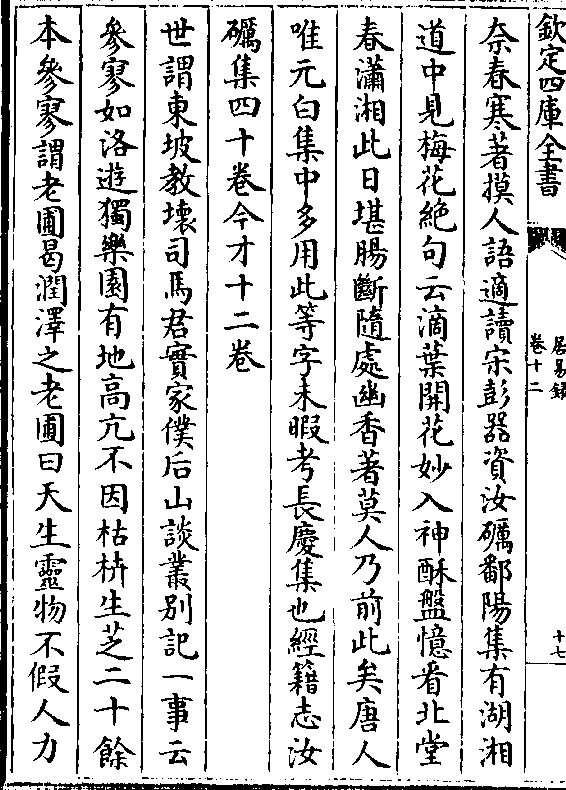 欽定四庫全書
居易録
卷十二
十七
奈春寒著摸人語適讀宋彭器資汝礪鄱陽集有湖湘
道中見梅花絶句云滴葉開花妙入神酥盤憶看北堂
春瀟湘此日堪腸斷隨處幽香著莫人乃前此矣唐人
唯元白集中多用此等字未暇考長慶集也經籍志汝
礪集四十卷今才十二卷
世謂東坡教壞司馬君實家僕后山談叢别記一事云
參寥如洛遊獨樂園有地高亢不因枯枿生芝二十餘
本參寥謂老圃曷潤澤之老圃曰天生靈物不假人力